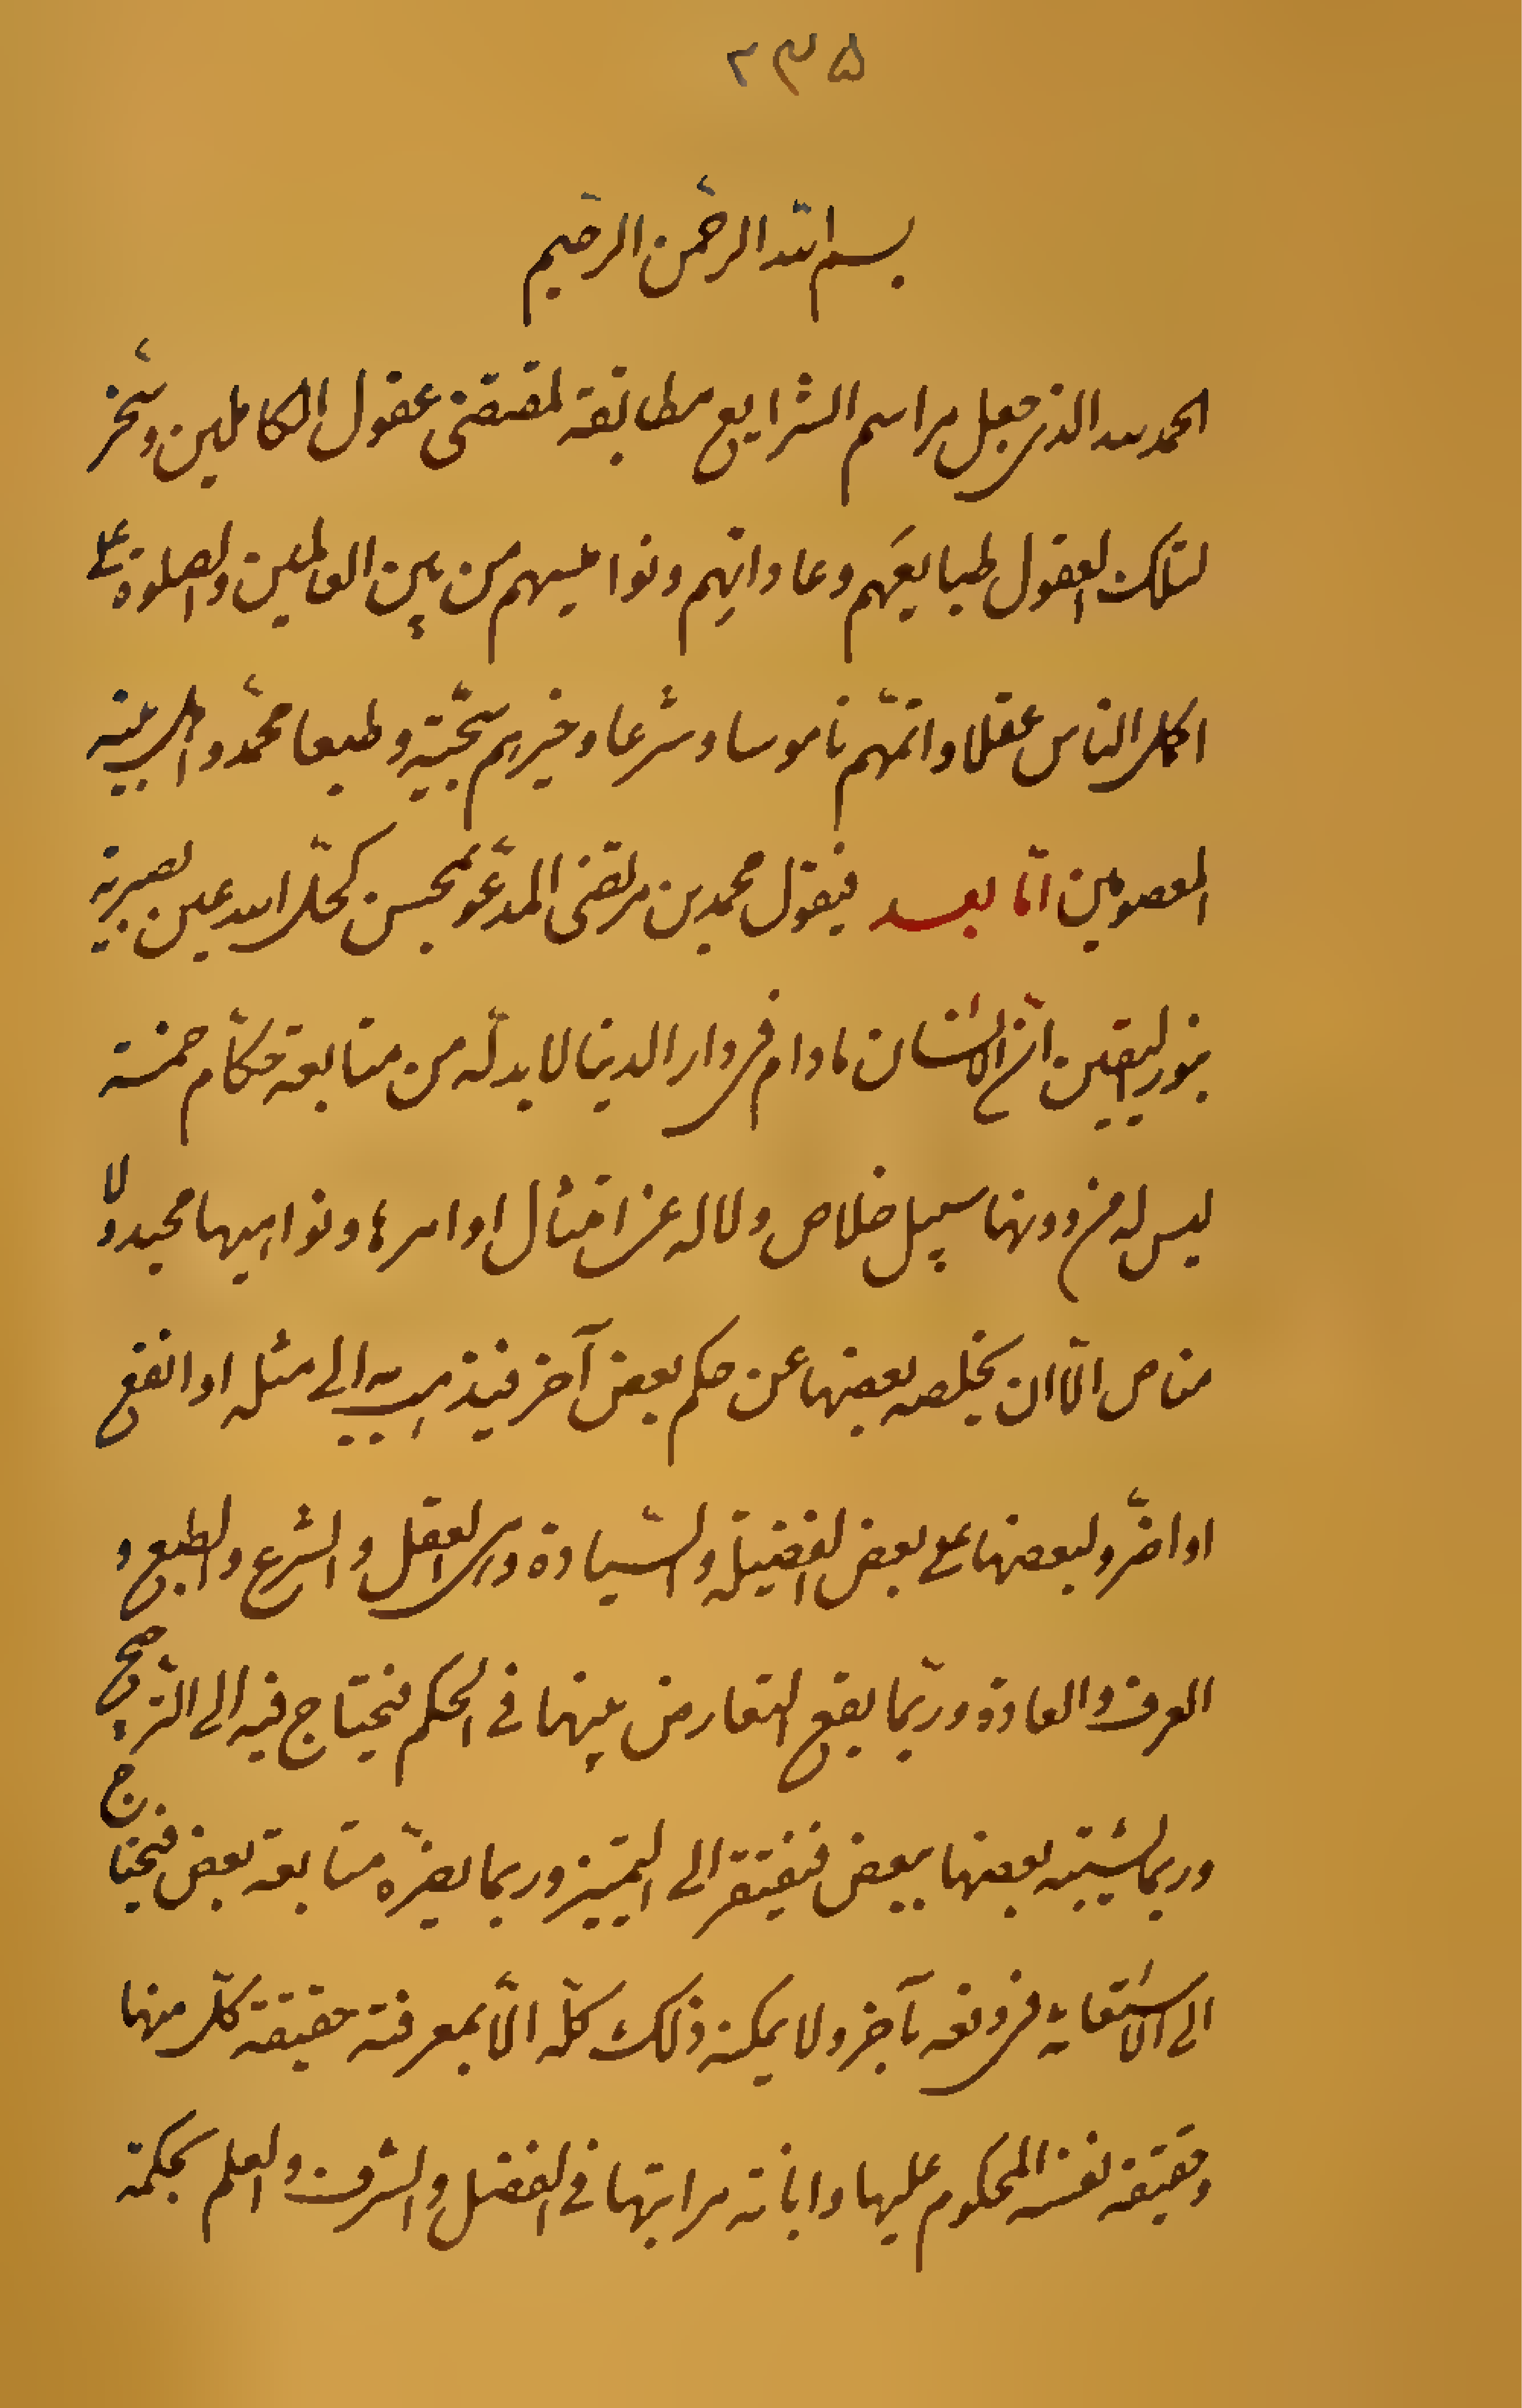 ۲۳۵
بسم الله الرحمن الرحیم
الحمد لله الذی جعل مراسم الشرایع مطابقة لمقتضی عقول الکاملین وسخّر
لتلک العقول طبایعهم وعاداتهم ونوامیسهم من بین العالمین والصلوة علی
اکمل الناس عقلا واتمّهم ناموسا وشرعا وخیرهم سجّیة وطبعا محمّد واهل بیته
المعصومین امّا بعد فیقول محمد بن مرتضی المدعوّ بمحسن کحّل الله عین بصیرته
بنور الیقین انّ الانسان مادام فی دار الدنیا لا بدّ له من متابعة حکّام خمسة
لیس له من دونها سبیل خلاص ولا له عن امتثال اوامرها ونواهیها محید ولا
مناص الّا ان یخلصه بعضها عن حکم بعض آخر فیذهب به الی مثله او انفع
او اضرّ ولبعضها علی بعض الفضیلة والسّیادة وهی العقل والشرع والطبع و
العرف والعادة وربّما یقع التعارض بینها فی الحکم فیحتاج فیه الی التّرجیح
وربما یشتبه بعضها ببعض فیفتقر الی التمییز وربما یضرّه متابعة بعض فیحتاج
الی الاستعانة فی دفعه بآخر ولا یمکنه ذلک کلّه الّا بمعرفة حقیقة کلّ منها
وحقیقة نفسه المحکوم علیها وابانة مراتبها فی الفضل والشرف والعلم بحکمة